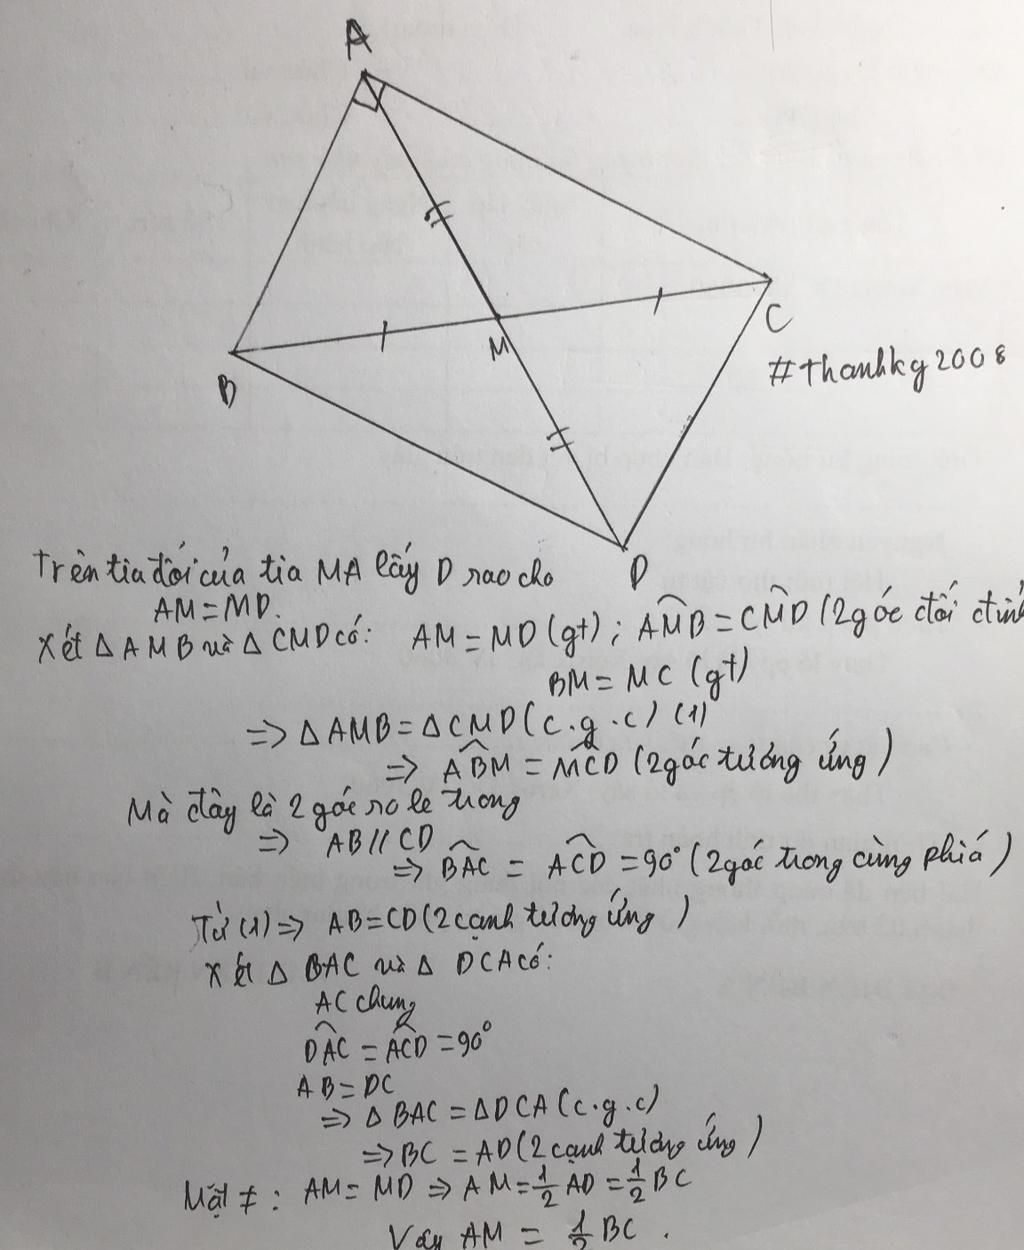 A
B
M
C
#thanhky2008
D
Trên tia đối của tia MA lấy D sao cho
AM = MD.
Xét Δ AMB và Δ CMD có: AM = MD (gt) ; AMB = CMD (2 góc đối đỉnh
BM = MC (gt)
=> Δ AMB = Δ CMD (c.g.c) (1)
=> ABM = MCD (2 góc tương ứng)
Mà đây là 2 góc so le trong
=> AB // CD
=> BAC = ACD = 90° (2 góc trong cùng phía)
Từ (1) => AB = CD (2 cạnh tương ứng)
Xét Δ BAC và Δ DCA có:
AC chung
DAC = ACD = 90°
AB = DC
=> Δ BAC = Δ DCA (c.g.c)
=> BC = AD (2 cạnh tương ứng)
Mặt ≠ : AM = MD => AM = 1/2 AD = 1/2 BC
Vậy AM = 1/2 BC .